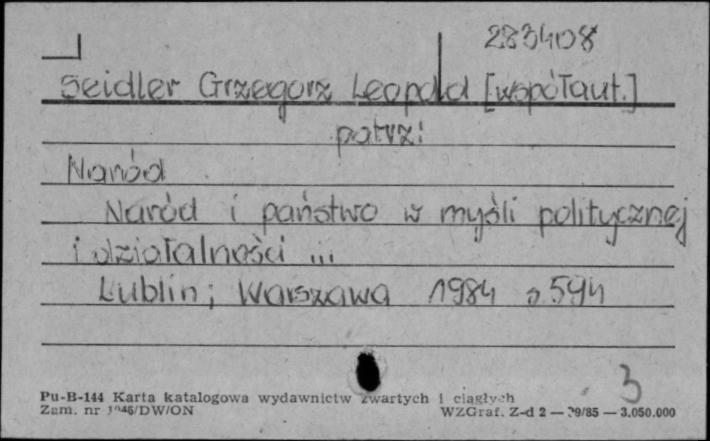 283408
Seidler Grzegorz Leopold [współaut.]
patrz:
Naród
Naród i państwo w myśli politycznej
i działalności ...
Lublin; Warszawa 1984 s 594
3
Pu-B-144 Karta katalogowa wydawnictw zwartych i ciągłych
Zam. nr /DW/ON WZGraf. Z-d 2 — 39/85 — 3.050.000